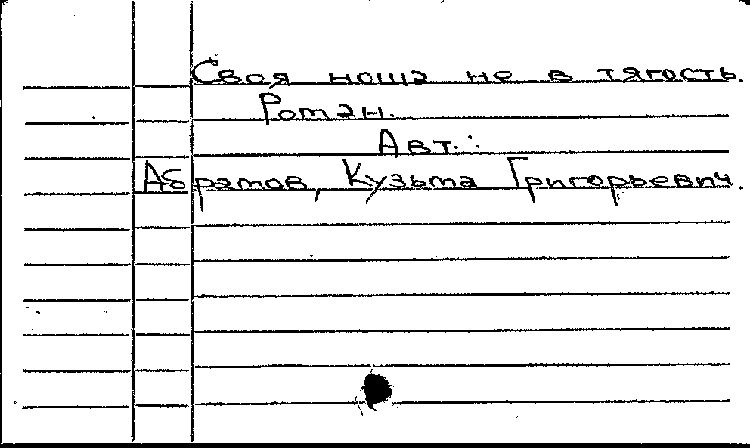 Своя ноша не в тягость.
Роман.
Авт.:
Абрамов, Кузьма Григорьевич.